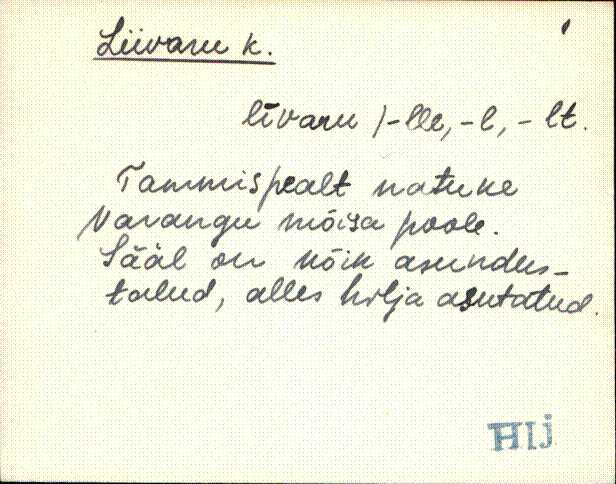 Liivaru k.
līvaru /-lle, -l, -lt.
Tammispealt natuke
Varangu mõisa poole.
Sääl on kõik asundus-
talud, alles hilja asutatud.
HIj